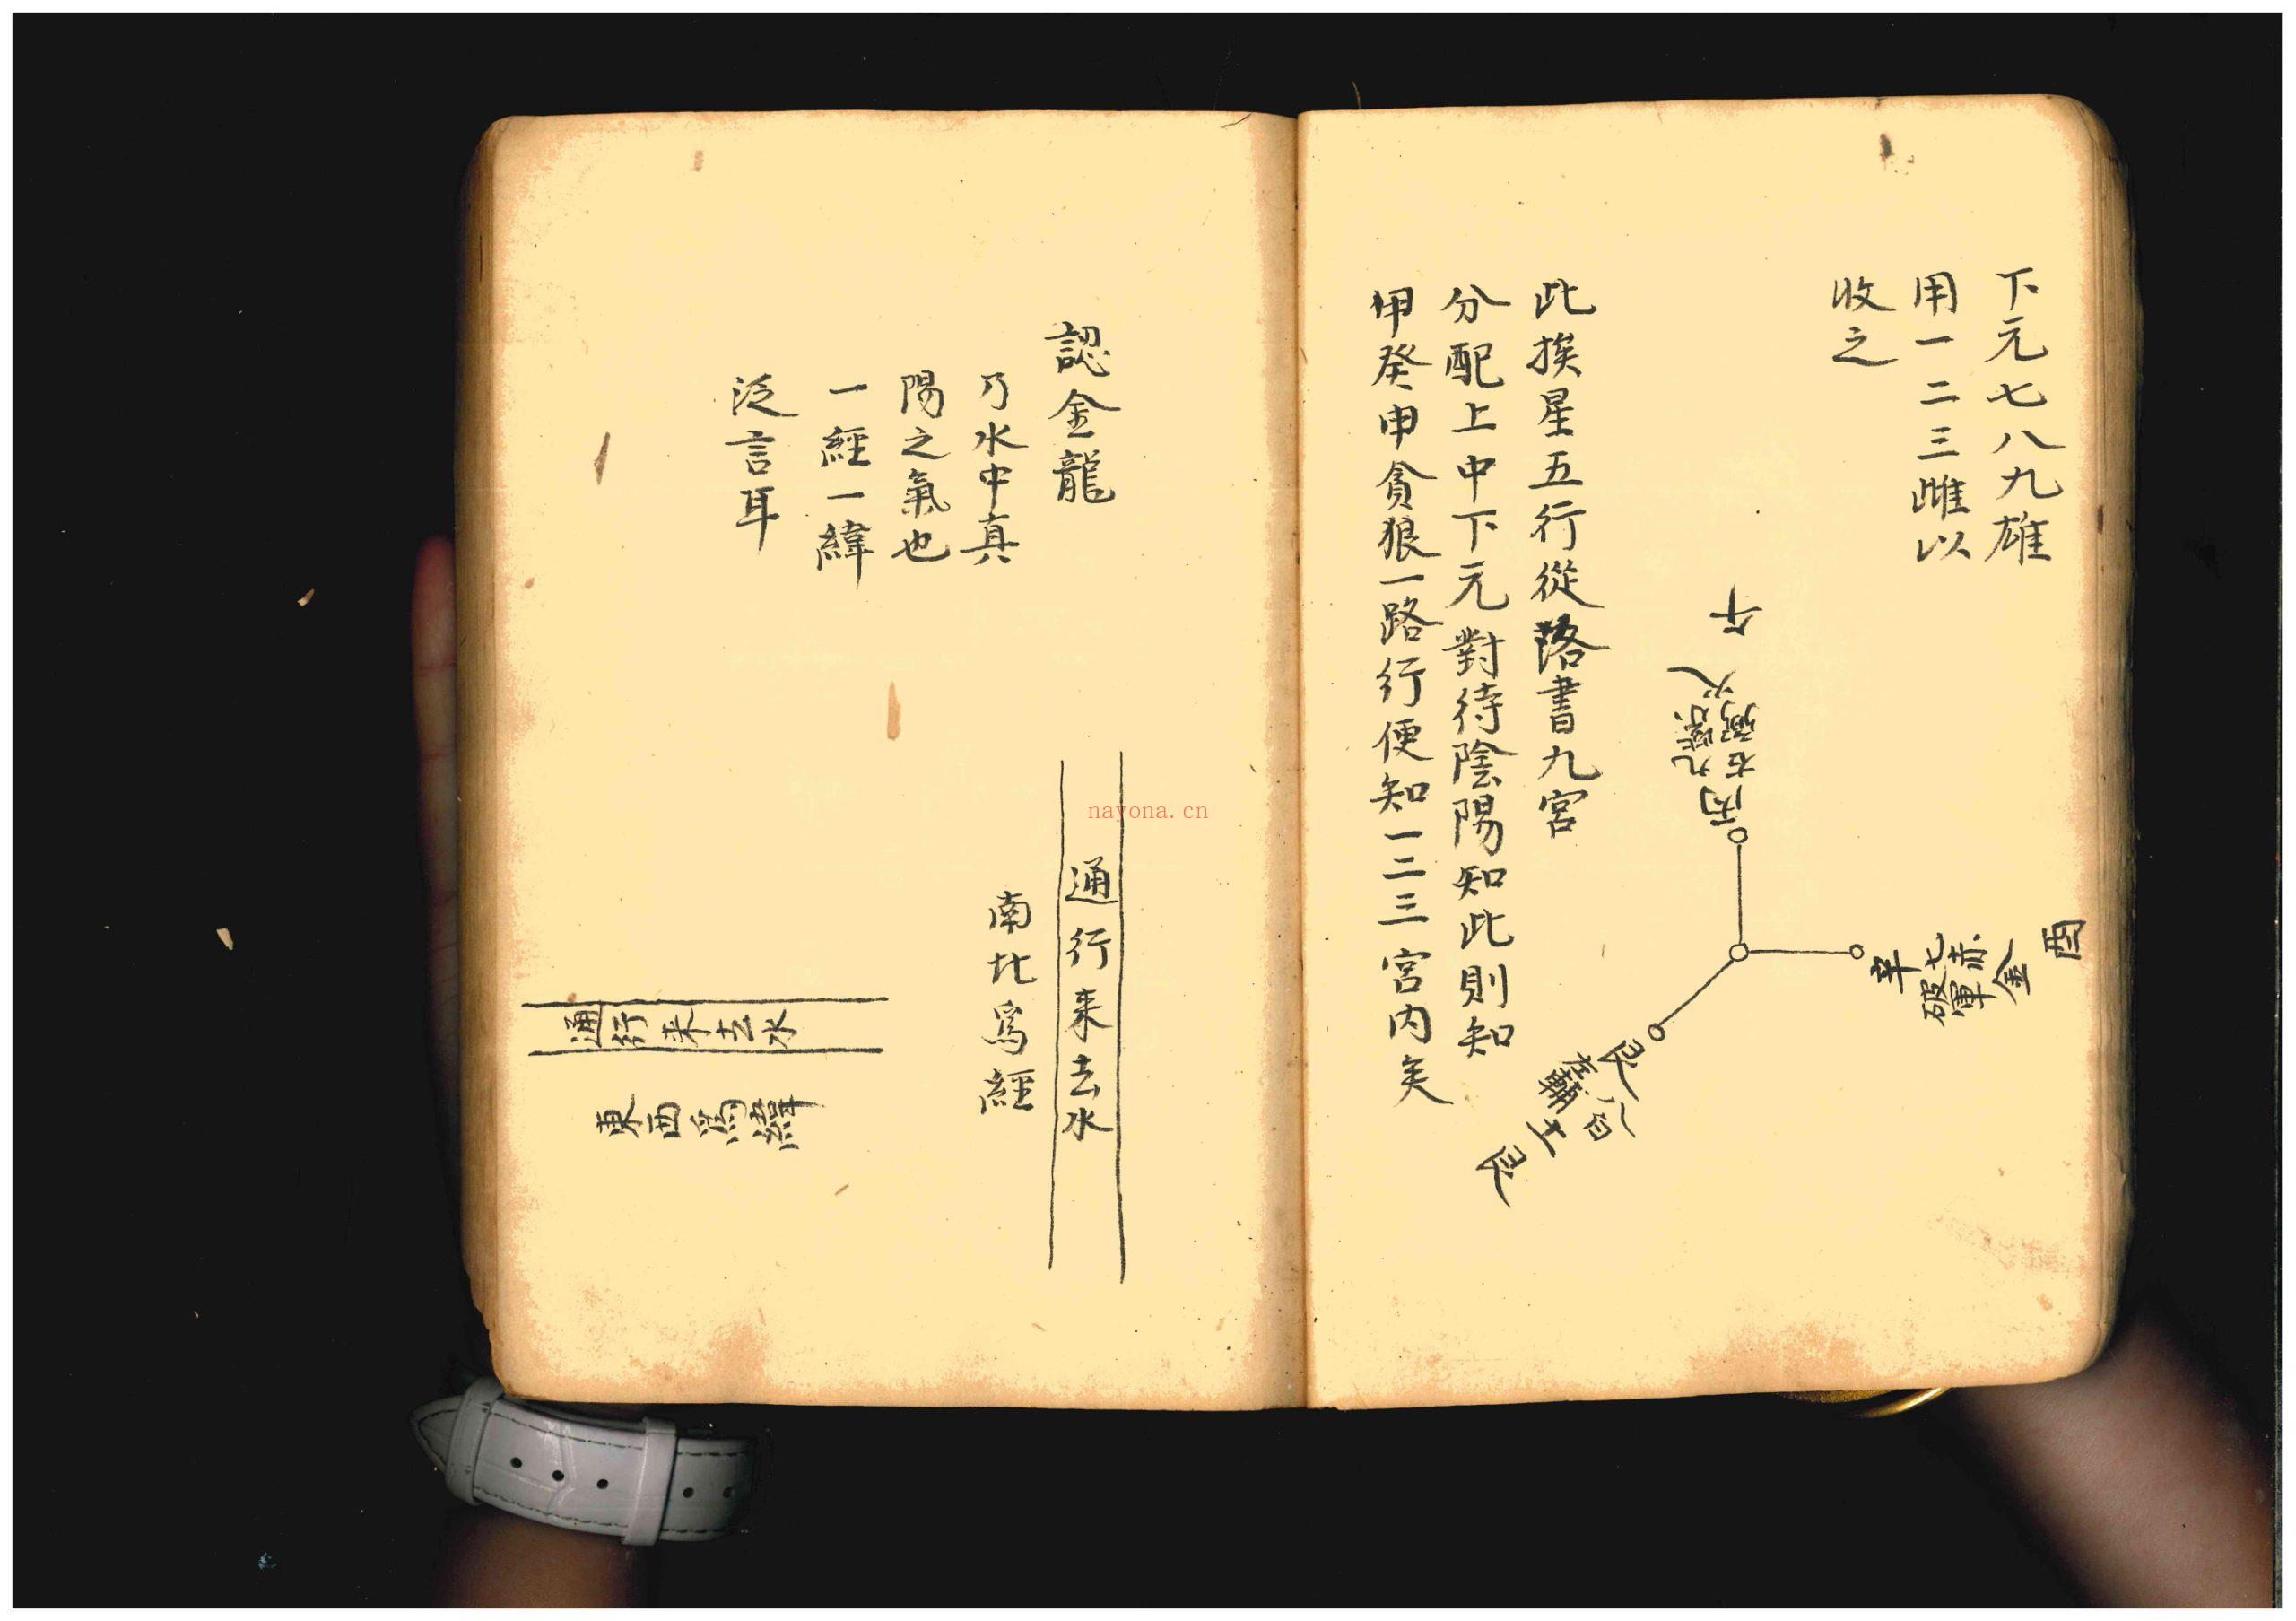 下元七八九雄
用一二三雌以
收之
午
火
九紫
右弼
丙
酉
金
七赤
破軍
辛
艮
八白
左輔
土
艮
此挨星五行從洛書九宮
分配上中下元對待陰陽知此則知
甲癸申貪狼一路行便知一二三宮内矣
認金龍
乃水中真
陽之氣也
一經一緯
泛言耳
通行来去水
南北爲經
通行来去水
東西爲緯
nayona.cn